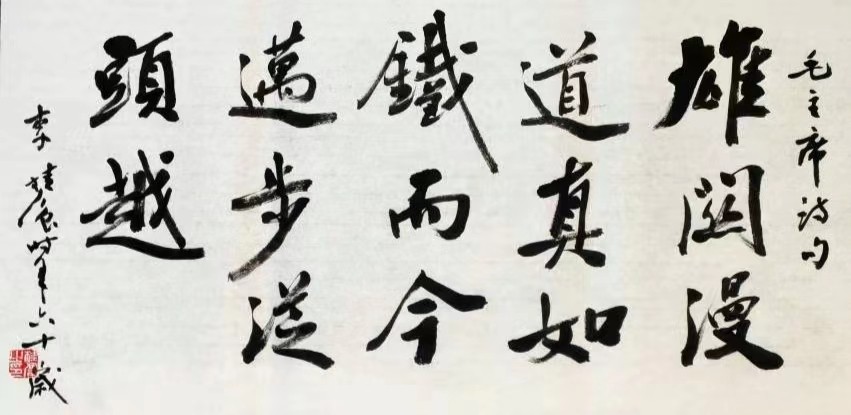 毛主席诗句
雄關漫
道真如
鐵而今
邁步從
頭越
李时年六十歲